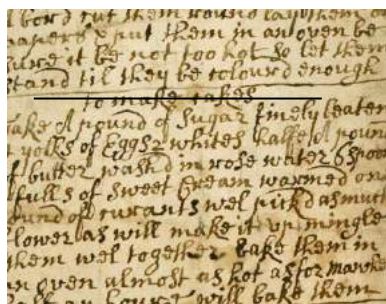 bord cut them round lay them o
papers & put them in an oven be
sure it be not too hot so let them
stand til they be colourd enough
to make cakes
take A pound of Sugar finely beaten
yolks of Eggs 2 whites halfe A poun
of butter washd in rose water 6 spoo
fulls of Sweet Cream warmed one
pound of currants wel pickd as much
flower as will make it up mingle
them wel together bake them in
an oven almost as hot as for manche
half an houre will bake them